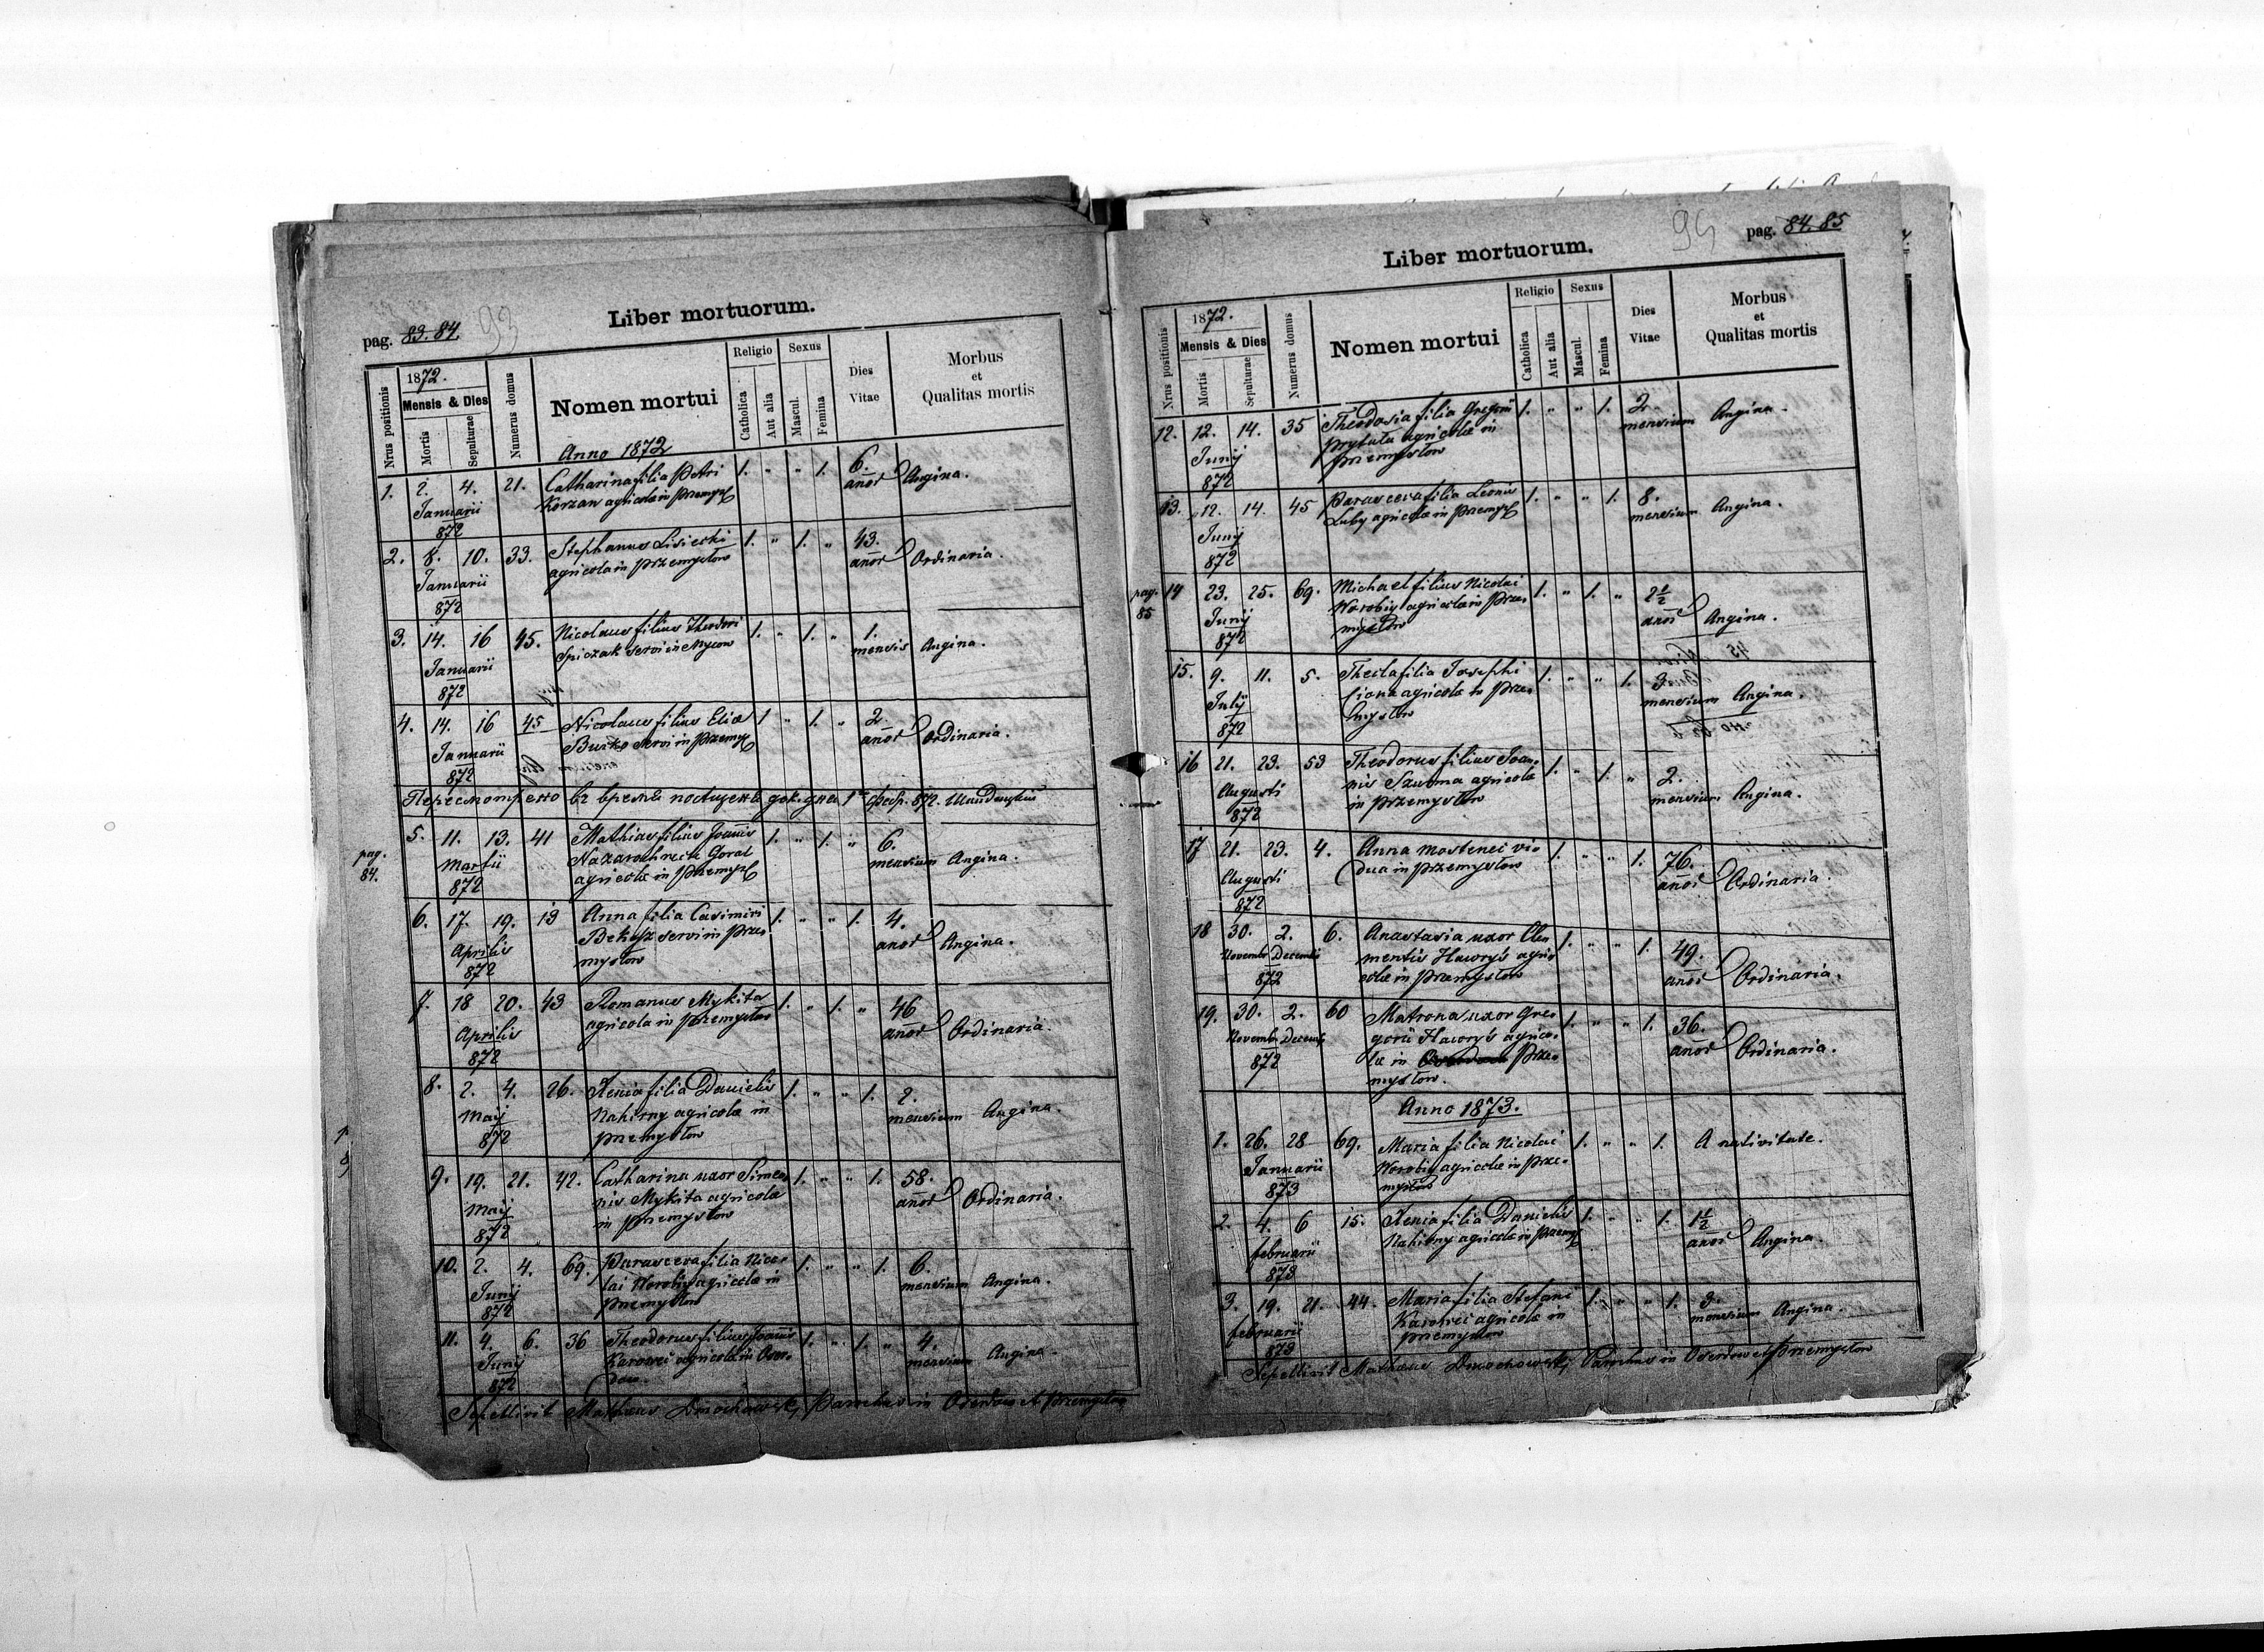 pag. 83. 84.
93
Liber mortuorum.
Nrus positionis
1872.
Mensis & Dies
Mortis
Sepulturae
Numerus domus
Nomen mortui
Religio
Catholica
Aut alia
Sexus
Mascul.
Femina
Dies
Vitae
Morbus
et
Qualitas mortis
Anno 1872
1. 2. 4. 21. Catharina filia Petri 1. " " 1. 6.
Januarii Korzan agricolae in Przemysł annor Angina.
872
2. 8. 10. 33. Stephanus Lisiecki 1. " 1. " 43.
Januarii agricola in Przemysłow annor Ordinaria.
872
3. 14. 16 45. Nicolaus filius Theodori 1. " 1. " 1.
Januarii Spiczak servi in Mycow mensis Angina.
872
4. 14. 16 45 Nicolaus filius Eliae 1 " 1. " 2.
Januarii Burko servi in Przemysł annor Ordinaria.
872
5. 11. 13. 41 Mathias filius Joannis 1. " 1. " 6.
pag. 84.
Martii Goral mensium Angina.
872 agricolae in Przemysł
6. 17. 19. 13 Anna filia Casimiri 1. " " 1. 4.
Aprilis servi in Prze- annor Angina.
872 mysłow
7. 18 20. 43 Romanus Mykita 1. " 1. " 46
Aprilis agricola in Przemysłow annor Ordinaria.
872
8. 2. 4. 26. Xenia filia Danielis 1. " " 1. 2.
Maij Nahirny agricolae in mensium Angina.
872 Przemysłow
9. 19. 21. 42. Catharina uxor Simeo- 1. " " 1. 58.
Maij nis Mykita agricolae annor Ordinaria.
872 in Przemysłow
10. 2. 4. 69. Parascevia filia Nico- 1. " " 1. 6.
Junij lai Worobij agricolae in mensium Angina.
872 Przemysłow
11. 4. 6. 36 Theodorus filius Joannis 1. " 1. " 4.
Junij Karowei agricolae in Oser- mensium Angina.
872 dow.
Sepellivit Mathaeus Dmochowsky Parochus in Oserdow et Przemysłow
94
pag. 84. 85
Liber mortuorum.
Nrus positionis
1872.
Mensis & Dies
Mortis
Sepulturae
Numerus domus
Nomen mortui
Religio
Catholica
Aut alia
Sexus
Mascul.
Femina
Dies
Vitae
Morbus
et
Qualitas mortis
12. 12. 14. 35 Theodosia filia Gregorii 1. " " 1. 2.
Junij Prytuła agricolae in mensium Angina.
872 Przemysłow
13. 12. 14. 45 Parasceva filia Leonis 1. " " 1. 8.
Junij Luby agricolae in Przemysł mensium Angina.
872
pag. 85
14 23. 25. 69. Michael filius Nicolai 1. " 1. " 2½
Junij Worobij agricolae in Prze- annor Angina.
872 mysłow
15. 9. 11. 5. Thecla filia Josephi 1. " " 1. 3.
Julij agricolae in Prze- mensium Angina.
872 mysłow
16 21. 23. 53 Theodorus filius Joan- 1. " 1. " 2.
Augusti nis Szuma agricolae mensium Angina.
872 in Przemysłow
17 21. 23. 4. Anna Mostenei vi- 1. " " 1. 76.
Augusti dua in Przemysłow annor Ordinaria.
872
18 30. 2. 6. Anastasia uxor Cle- 1. " " 1. 49.
Novembr Decembr mentis Hawryś agri- annor Ordinaria.
872 colae in Przemysłow
19. 30. 2. 60 Matrona uxor Gre- 1. " " 1. 36.
Novembr Decemb gorii Hawryś agrico- annor Ordinaria.
872 lae in Prze-
mysłow.
Anno 1873.
1. 26. 28 69. Maria filia Nicolai 1. " " 1. A nativitate.
Januarii Worobij agricolae in Prze-
873 mysłow
2. 4. 6 15. Xenia filia Danielis 1. " " 1. 1½
februarii Nahirny agricolae in Przemysł annor Angina.
873
3. 19. 21. 44. Maria filia Stefani 1. " " 1. 3.
februarii Karowei agricolae in mensium Angina.
873 Przemysłow
Sepellivit Mathaeus Dmochowsky Parochus in Oserdow et Przemysłow